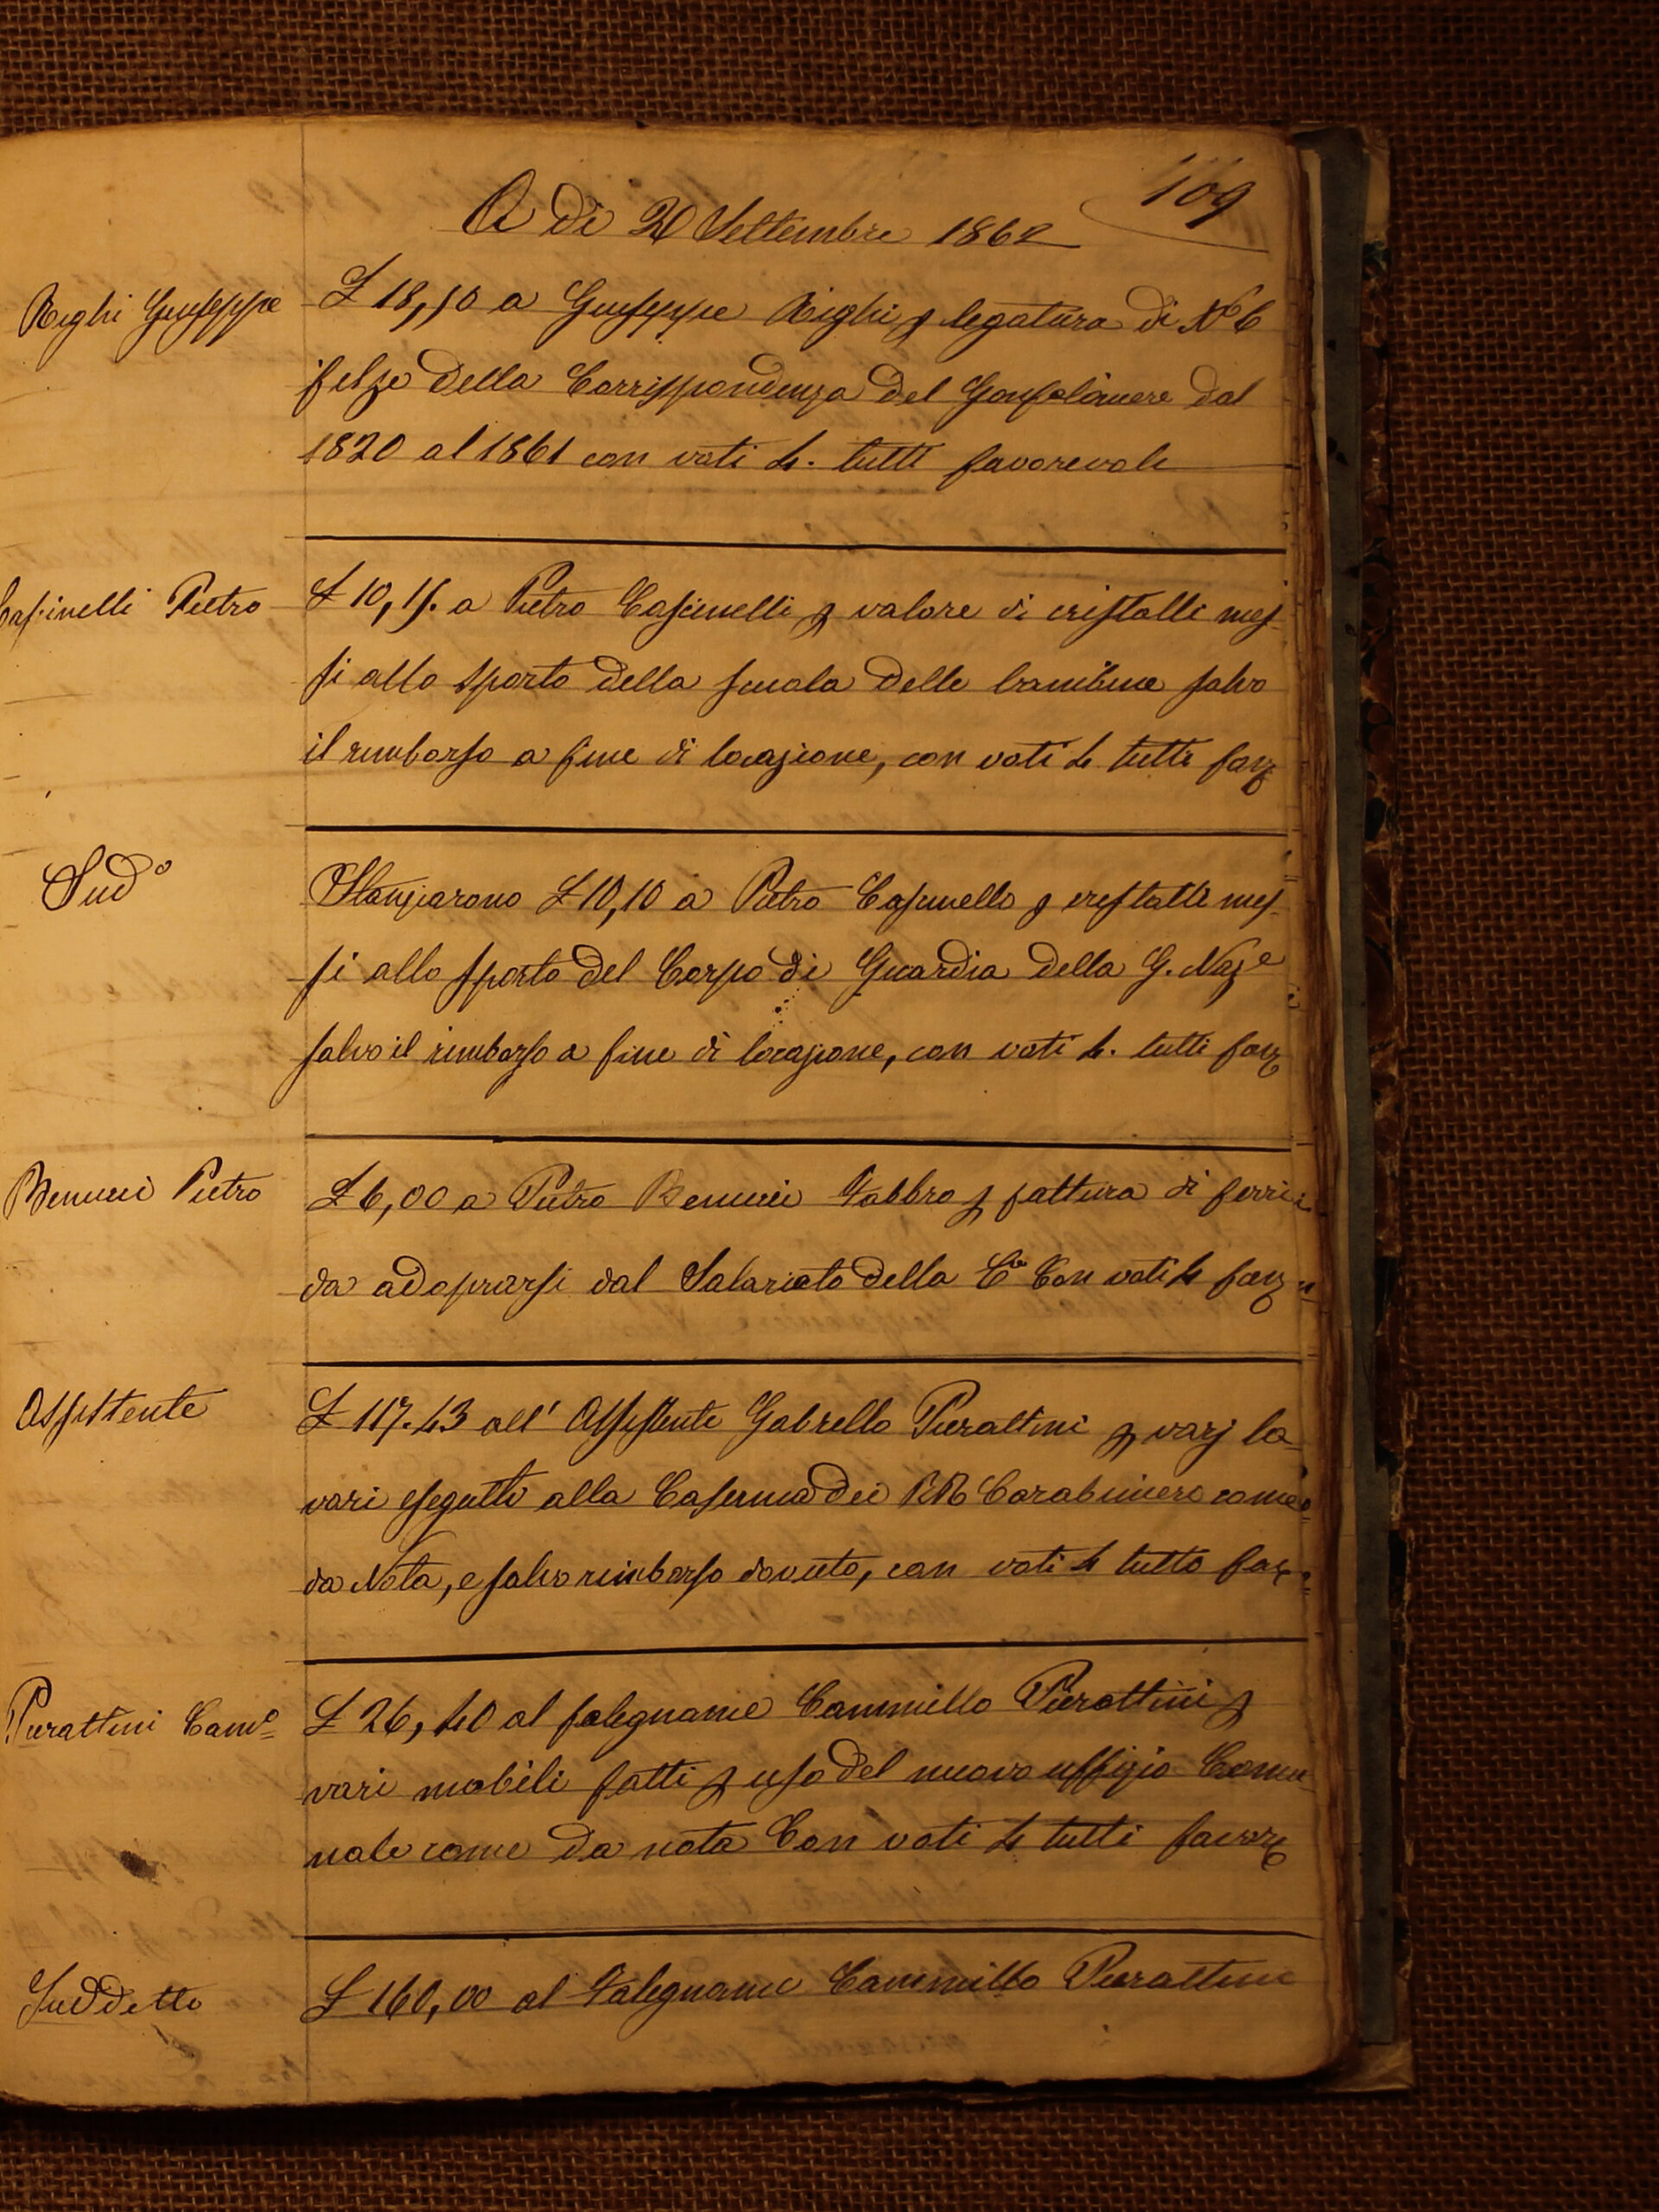 109
A dì 20 Settembre 1862
Righi Giuseppe
£ 18,50 a Giuseppe Righi p legatura di No 6
filze della Corrispondenza del Gonfaloniere dal
1820 al 1861 con voti 4. tutti favorevole
Cascinelli Pietro
£ 10,15. a Pietro Cascinelli p valore di cristalli mes-
si allo sporto della scuola delle bambine salvo
il rimborso a fine di locazione, con voti 4 tutti fav
Sudo
Stanziarono £ 10,10 a Pietro p cristalli mes-
si allo sporto del Corpo di Guardia della G. Naze
salvo il rimborso a fine di locazione, con voti 4. tutti fav
Benucci Pietro
£ 6,00 a Pietro Benucci Fabbro p fattura di ferri
da adoprarsi dal Salariato della Con voti 4 fav
Assistente
£ 117.43 all' Assistente Gabrello Pierattini p varj la-
vori eseguiti alla Caserma dei RR Carabinieri come
da Nota, e salvo rimborso dovuto, con voti 4 tutto fav
Pierattini Camo
£ 26,40 al falegname Cammillo Pierattini p
vari mobili fatti p uso del nuovo uffizio Comu
nale come da nota Con voti 4 tutti favore
Suddetto
£ 160,00 al Falegname Cammillo Pierattini